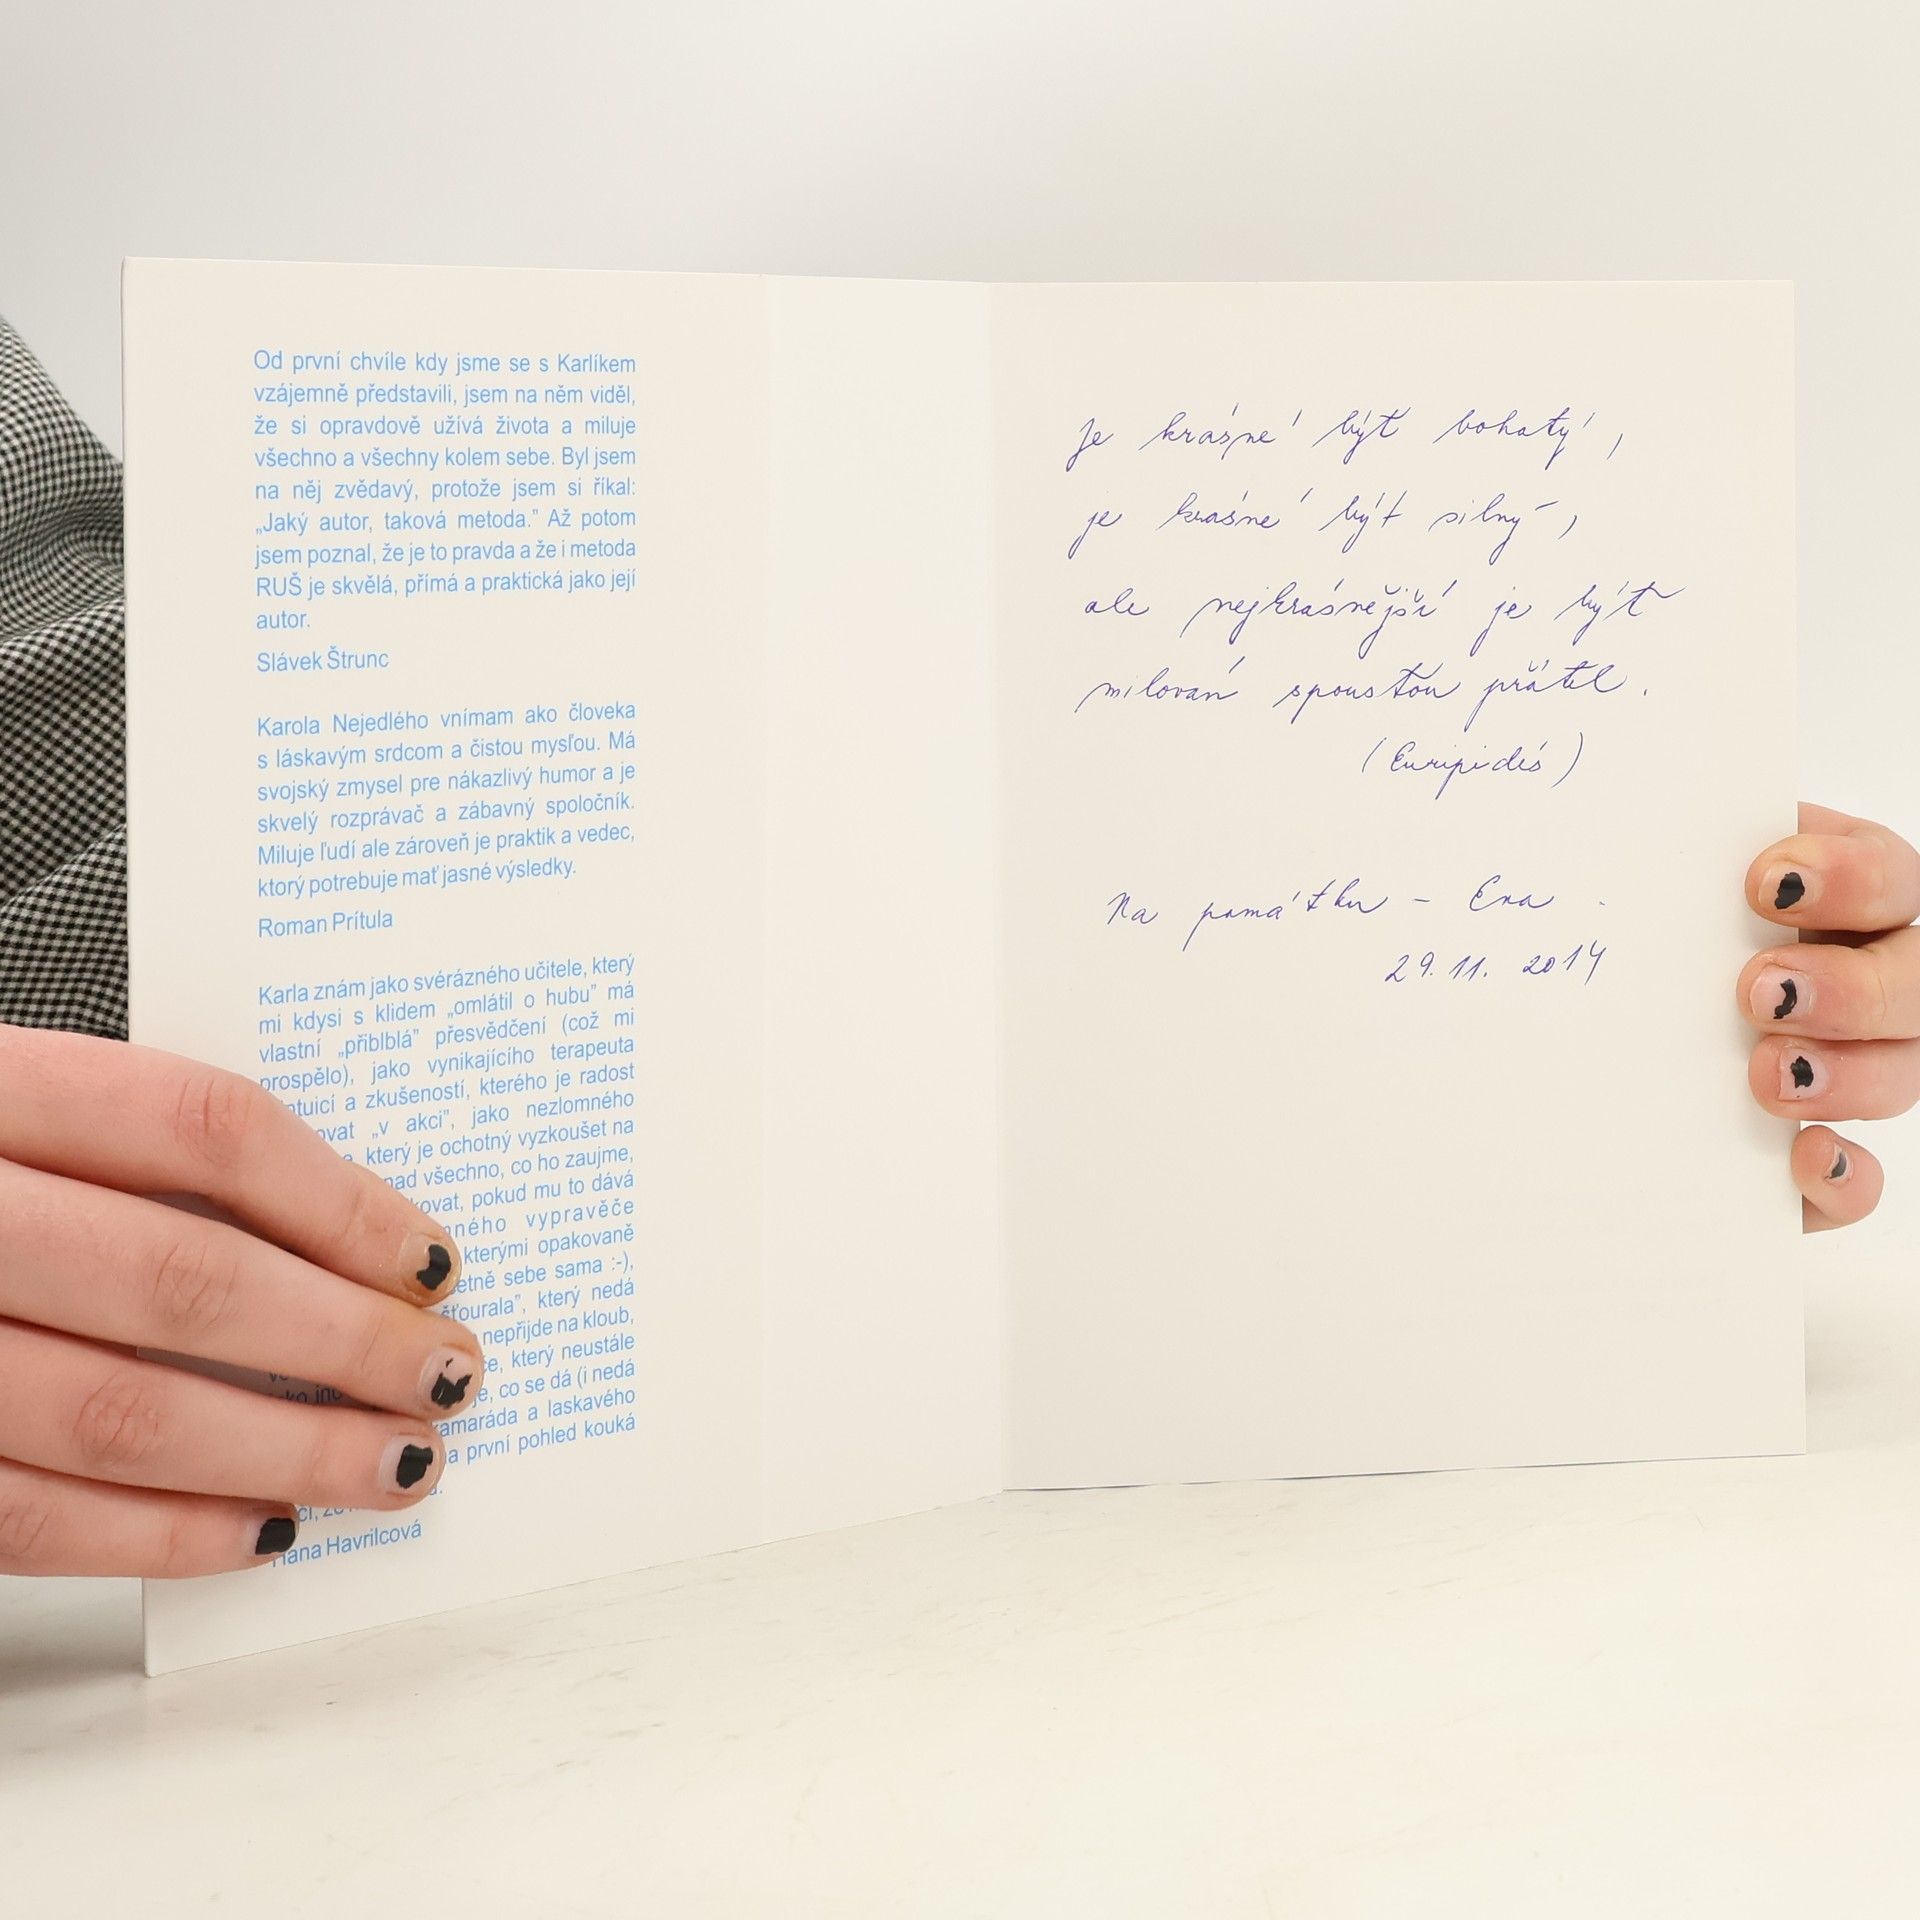 Od první chvíle kdy jsme se s Karlíkem
vzájemně představili, jsem na něm viděl,
že si opravdově užívá života a miluje
všechno a všechny kolem sebe. Byl jsem
na něj zvědavý, protože jsem si říkal:
„Jaký autor, taková metoda.” Až potom
jsem poznal, že je to pravda a že i metoda
RUŠ je skvělá, přímá a praktická jako její
autor.
Slávek Štrunc
Karola Nejedlého vnímam ako človeka
s láskavým srdcom a čistou mysľou. Má
svojský zmysel pre nákazlivý humor a je
skvelý rozprávač a zábavný spoločník.
Miluje ľudí ale zároveň je praktik a vedec,
ktorý potrebuje mať jasné výsledky.
Roman Prítula
Karla znám jako svérázného učitele, který
mi kdysi s klidem „omlátil o hubu” má
vlastní „přiblblá” přesvědčení (což mi
prospělo), jako vynikajícího terapeuta
a zkušeností, kterého je radost
„v akci”, jako nezlomného
který je ochotný vyzkoušet na
všechno, co ho zaujme,
pokud mu to dává
vypravěče
kterými opakovaně
sebe sama :-),
který nedá
nepřijde na kloub,
který neustále
co se dá (i nedá
a laskavého
první pohled kouká
Hana Havrilcová
Je krásné být bohatý,
je krásné být silný,
ale nejkrásnější je být
milován spoustou přátel.
(Euripidés)
Na památku - Eva.
29. 11. 2014